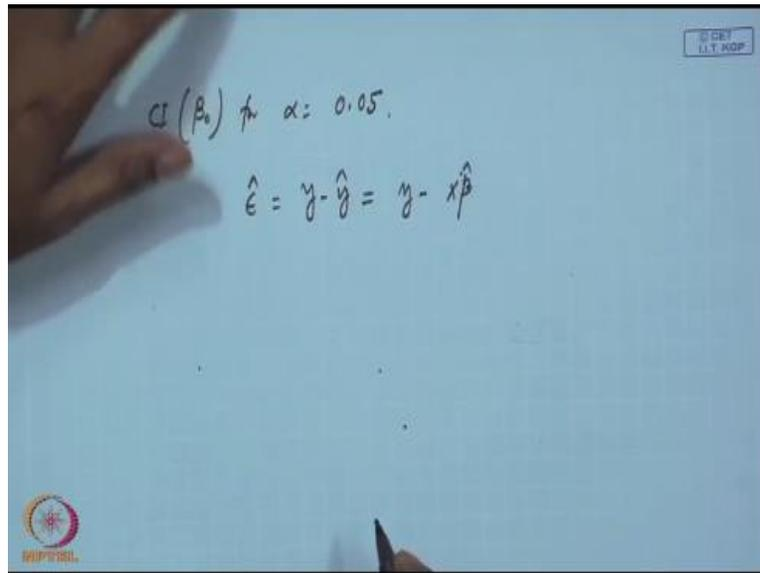 © CET
I.I.T. KGP
CI (β₀) for α = 0.05.
ε̂ = y - ŷ = y - xβ̂
NPTEL